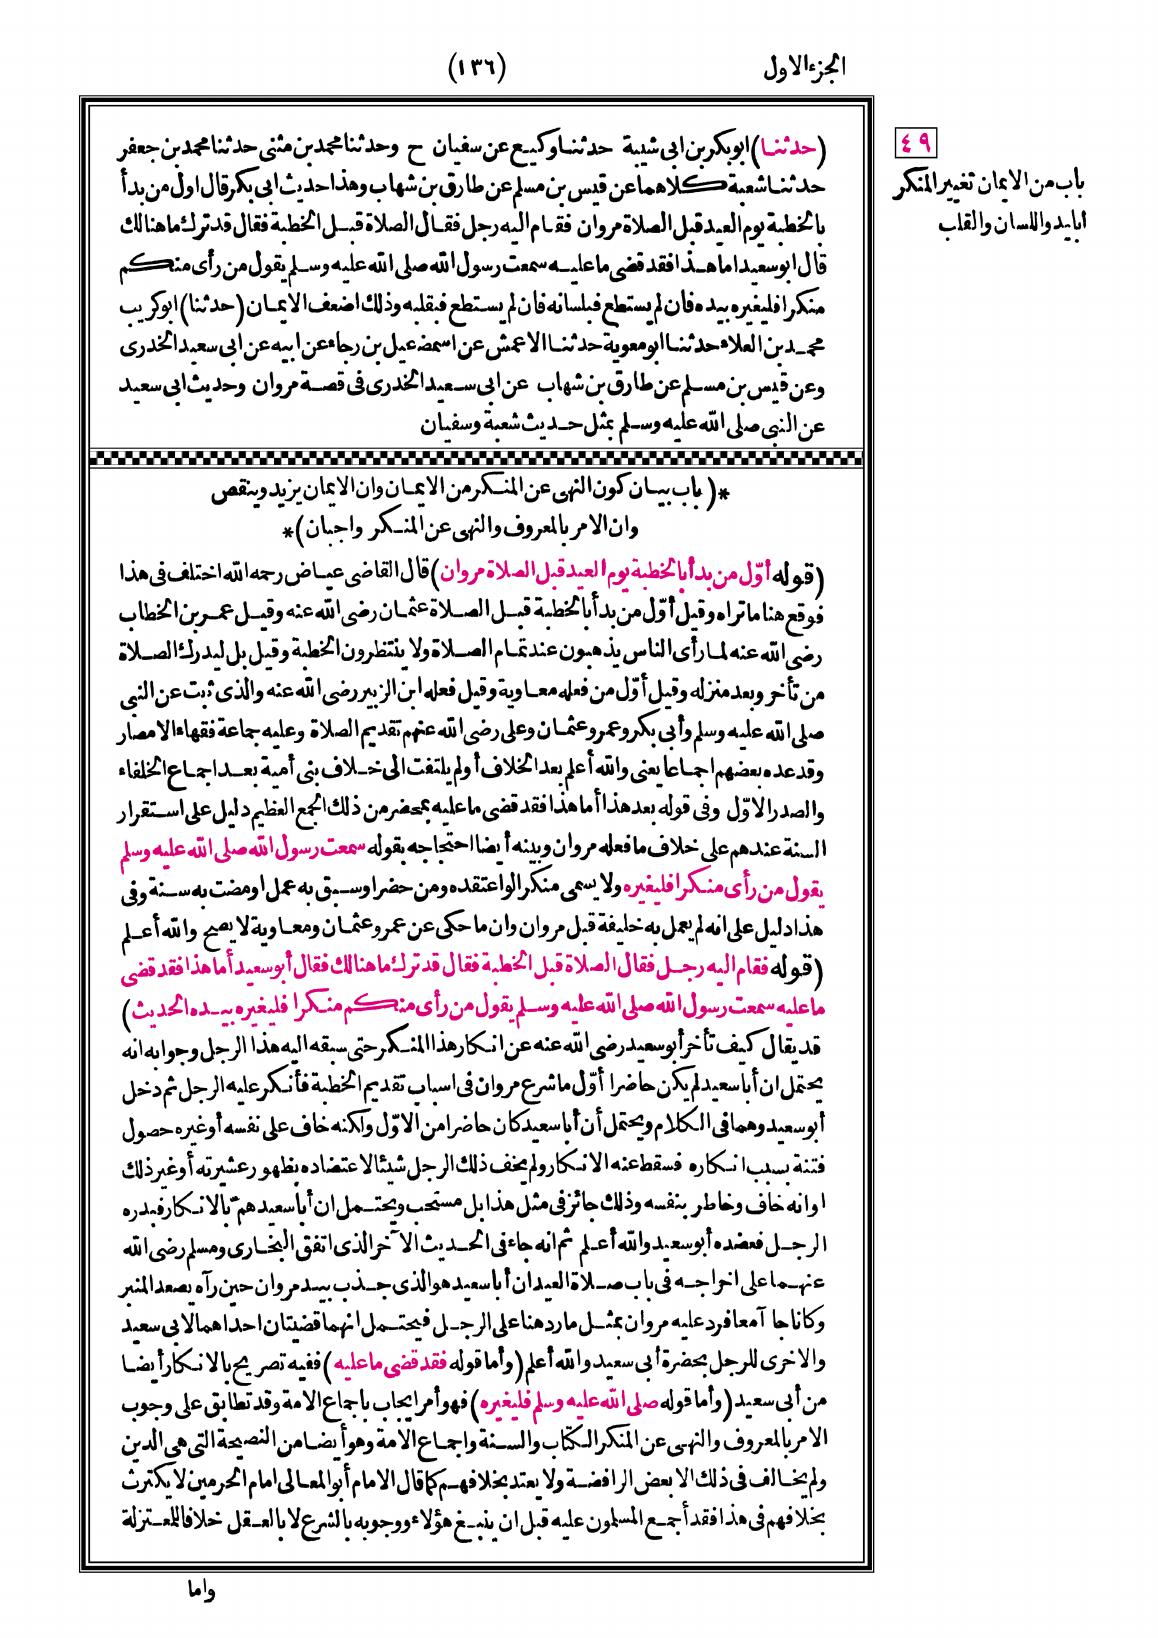 الجزء الاول
(١٣٦)
٤٩
باب من الايمان تغيير المنكر
أباليد واللسان والقلب
(حدثنا) ابو بكر بن ابى شيبة حدثنا وكيع عن سفيان ح وحدثنا محمد بن مثنى حدثنا محمد بن جعفر
حدثنا شعبة كلاهما عن قيس بن مسلم عن طارق بن شهاب وهذا حديث ابى بكر قال اول من بدأ
بالخطبة يوم العيد قبل الصلاة مروان فقام اليه رجل فقال الصلاة قبل الخطبة فقال قد ترك ما هنالك
قال ابو سعيد اما هذا فقد قضى ما عليه سمعت رسول الله صلى الله عليه وسلم يقول من رأى منكم
منكرا فليغيره بيده فان لم يستطع فبلسانه فان لم يستطع فبقلبه وذلك اضعف الايمان (حدثنا) ابو كريب
محمد بن العلاء حدثنا ابو معوية حدثنا الاعمش عن اسمعيل بن رجاء عن ابيه عن ابى سعيد الخدرى
وعن قيس بن مسلم عن طارق بن شهاب عن ابى سعيد الخدرى فى قصة مروان وحديث ابى سعيد
عن النبى صلى الله عليه وسلم بمثل حديث شعبة وسفيان
*( باب بيان كون النهى عن المنكر من الايمان وان الايمان يزيد وينقص
وان الامر بالمعروف والنهى عن المنكر واجبان )*
(قوله أوّل من بدأ بالخطبة يوم العيد قبل الصلاة مروان) قال القاضى عياض رحمه الله اختلف فى هذا
فوقع هنا ما تراه وقيل أوّل من بدأ بالخطبة قبل الصلاة عثمان رضى الله عنه وقيل عمر بن الخطاب
رضى الله عنه لما رأى الناس يذهبون عند تمام الصلاة ولا ينتظرون الخطبة وقيل بل ليدرك الصلاة
من تأخر وبعد منزله وقيل أوّل من فعله معاوية وقيل فعله ابن الزبير رضى الله عنه والذى ثبت عن النبى
صلى الله عليه وسلم وأبى بكر وعمر وعثمان وعلى رضى الله عنهم تقديم الصلاة وعليه جماعة فقهاء الامصار
وقد عده بعضهم اجماعا يعنى والله أعلم بعد الخلاف أو لم يلتفت الى خلاف بنى أمية بعد اجماع الخلفاء
والصدر الاوّل وفى قوله بعد هذا أما هذا فقد قضى ما عليه بمحضر من ذلك الجمع العظيم دليل على استقرار
السنة عندهم على خلاف ما فعله مروان وبينه أيضا احتجاجه بقوله سمعت رسول الله صلى الله عليه وسلم
يقول من رأى منكرا فليغيره ولا يسمى منكرا لو اعتقده ومن حضر أو سبق به عمل او مضت به سنة وفى
هذا دليل على انه لم يعمل به خليفة قبل مروان وان ما حكى عن عمر وعثمان ومعاوية لا يصح والله أعلم
(قوله فقام اليه رجل فقال الصلاة قبل الخطبة فقال قد ترك ما هنالك فقال أبو سعيد أما هذا فقد قضى
ما عليه سمعت رسول الله صلى الله عليه وسلم يقول من رأى منكم منكرا فليغيره بيده الحديث)
قد يقال كيف تأخر أبو سعيد رضى الله عنه عن انكار هذا المنكر حتى سبقه اليه هذا الرجل وجوابه انه
يحتمل ان أبا سعيد لم يكن حاضرا أوّل ما شرع مروان فى اسباب تقديم الخطبة فأنكر عليه الرجل ثم دخل
أبو سعيد وهما فى الكلام ويحتمل أن أبا سعيد كان حاضرا من الاوّل ولكنه خاف على نفسه أو غيره حصول
فتنة بسبب انكاره فسقط عنه الانكار ولم يخف ذلك الرجل شيئا لاعتضاده بظهور عشيرته أو غير ذلك
او انه خاف وخاطر بنفسه وذلك جائز فى مثل هذا بل مستحب ويحتمل ان أبا سعيد همّ بالانكار فبدره
الرجل فعضده أبو سعيد والله أعلم ثم انه جاء فى الحديث الآخر الذى اتفق البخارى ومسلم رضى الله
عنهما على اخراجه فى باب صلاة العيد ان أبا سعيد هو الذى جذب بيد مروان حين رآه يصعد المنبر
وكانا جا آ معا فرد عليه مروان بمثل ما رد هنا على الرجل فيحتمل انهما قضيتان احداهما لابى سعيد
والاخرى للرجل بحضرة أبى سعيد والله أعلم (وأما قوله فقد قضى ما عليه) ففيه تصريح بالانكار أيضا
من أبى سعيد (وأما قوله صلى الله عليه وسلم فليغيره) فهو أمر ايجاب باجماع الامة وقد تطابق على وجوب
الامر بالمعروف والنهى عن المنكر الكتاب والسنة واجماع الامة وهو أيضا من النصيحة التى هى الدين
ولم يخالف فى ذلك الا بعض الرافضة ولا يعتد بخلافهم كما قال الامام أبو المعالى امام الحرمين لا يكترث
بخلافهم فى هذا فقد أجمع المسلمون عليه قبل ان ينبغ هؤلاء ووجوبه بالشرع لا بالعقل خلافا للمعتزلة
واما